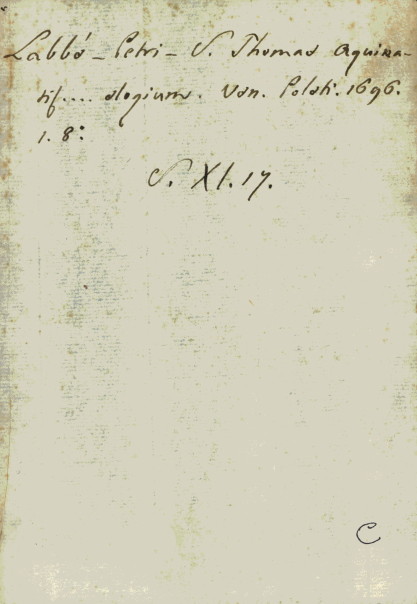 Labbé - Petri - S. Thomas Aquina-
tis.... elogium. Ven. Poleti. 1696.
1. 8:
S. XI. 17.
C